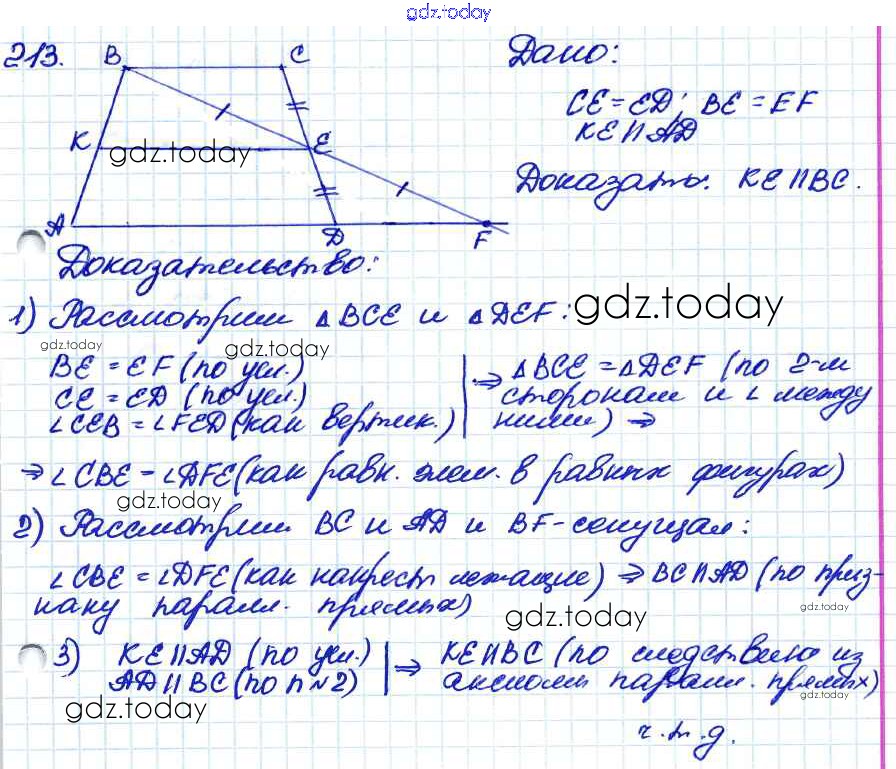 gdz.today
213.
B C
K E
gdz.today
A D F
Дано:
CE = ED; BE = EF
KE || AD
Доказать: KE || BC.
Доказательство:
1) Рассмотрим △BCE и △DEF:
gdz.today
gdz.today
gdz.today
BE = EF (по усл.)
CE = ED (по усл.)
∠CEB = ∠FED (как вертик.)
⇒ △BCE = △DEF (по 2-м
сторонам и ∠ между
ними) ⇒
⇒ ∠CBE = ∠DFE (как равн. элем. в равных фигурах)
gdz.today
2) Рассмотрим BC и AD и BF - секущая:
∠CBE = ∠DFE (как накрест лежащие) ⇒ BC || AD (по приз-
наку паралл. прямых)
gdz.today
gdz.today
3) KE || AD (по усл.)
AD || BC (по п №2)
⇒ KE || BC (по следствию из
аксиомы паралл. прямых)
gdz.today
gdz.today
ч.т.д.